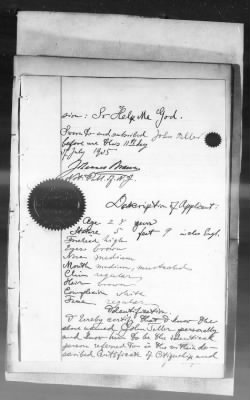 sion: So Help Me God.
Sworn to and subscribed John Teller
before me this 11th day
of July 1905
James
Description of Applicant:
Age 28 years
Stature 5 feet 9 inches Engl.
Forehead high
Eyes brown
Nose medium
Mouth medium, mustached
Chin regular
Hair brown
Complexion white
Face regular
Identification
I hereby certify that I know the
above named John Teller personally
and know him to be the identical
person referred to in the within de-
scribed Certificate of Citizenship and